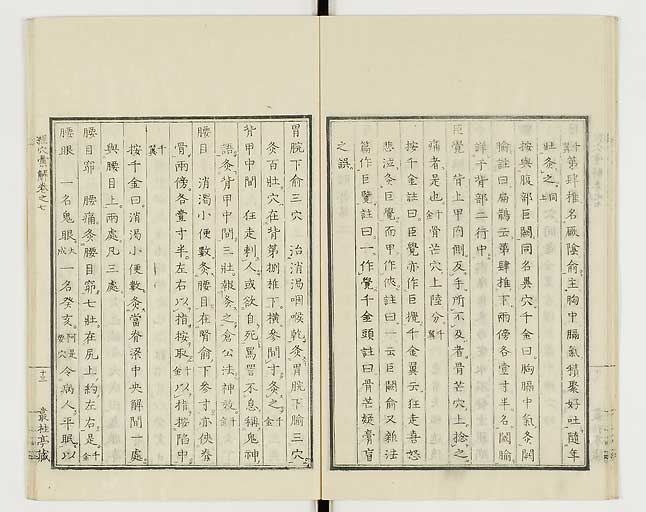 千翼第肆椎名厥陰俞主胸中膈氣積聚好吐隨年
壯灸之同上
按與腹部巨闕同名異穴千金曰胸膈中氣灸闕
腧註曰扁鵲云第肆椎下兩傍各壹寸半名闕腧
詳于背部二行中
巨覺 背上甲內側反手所不及者骨芒穴上捻之
痛者是也千金骨芒穴上陸分千翼
按千金註曰巨覺亦作巨攪千金翼云狂走喜怒
悲泣灸巨覺而甲作俠註曰一云巨闕俞又雜法
篇作巨覽註曰一作覺千金頭註曰骨芒疑膏肓
之誤
胃脘下俞三穴 治消渴咽喉乾灸胃脘下腧三穴
灸百壯穴在背第捌椎下橫參間寸灸之千金
背甲中間 狂走刺人或欲自死罵詈不息稱鬼神
語灸背甲中間三壯報灸之倉公法神效千金
腰目 消渴小便數灸腰目在腎俞下參寸亦俠脊
骨兩傍各壹寸半左右以指按取千金以指按陷中
千翼
按千金曰消渴小便數灸當脊梁中央解間一處
與腰目上兩處凡三處
腰目窌 腰痛灸腰目窌七壯在尻上約左右是千金
腰眼 一名鬼眼大成一名癸亥阿是營穴令病人平眠以
經穴彙解卷之七
十三
叢桂亭藏